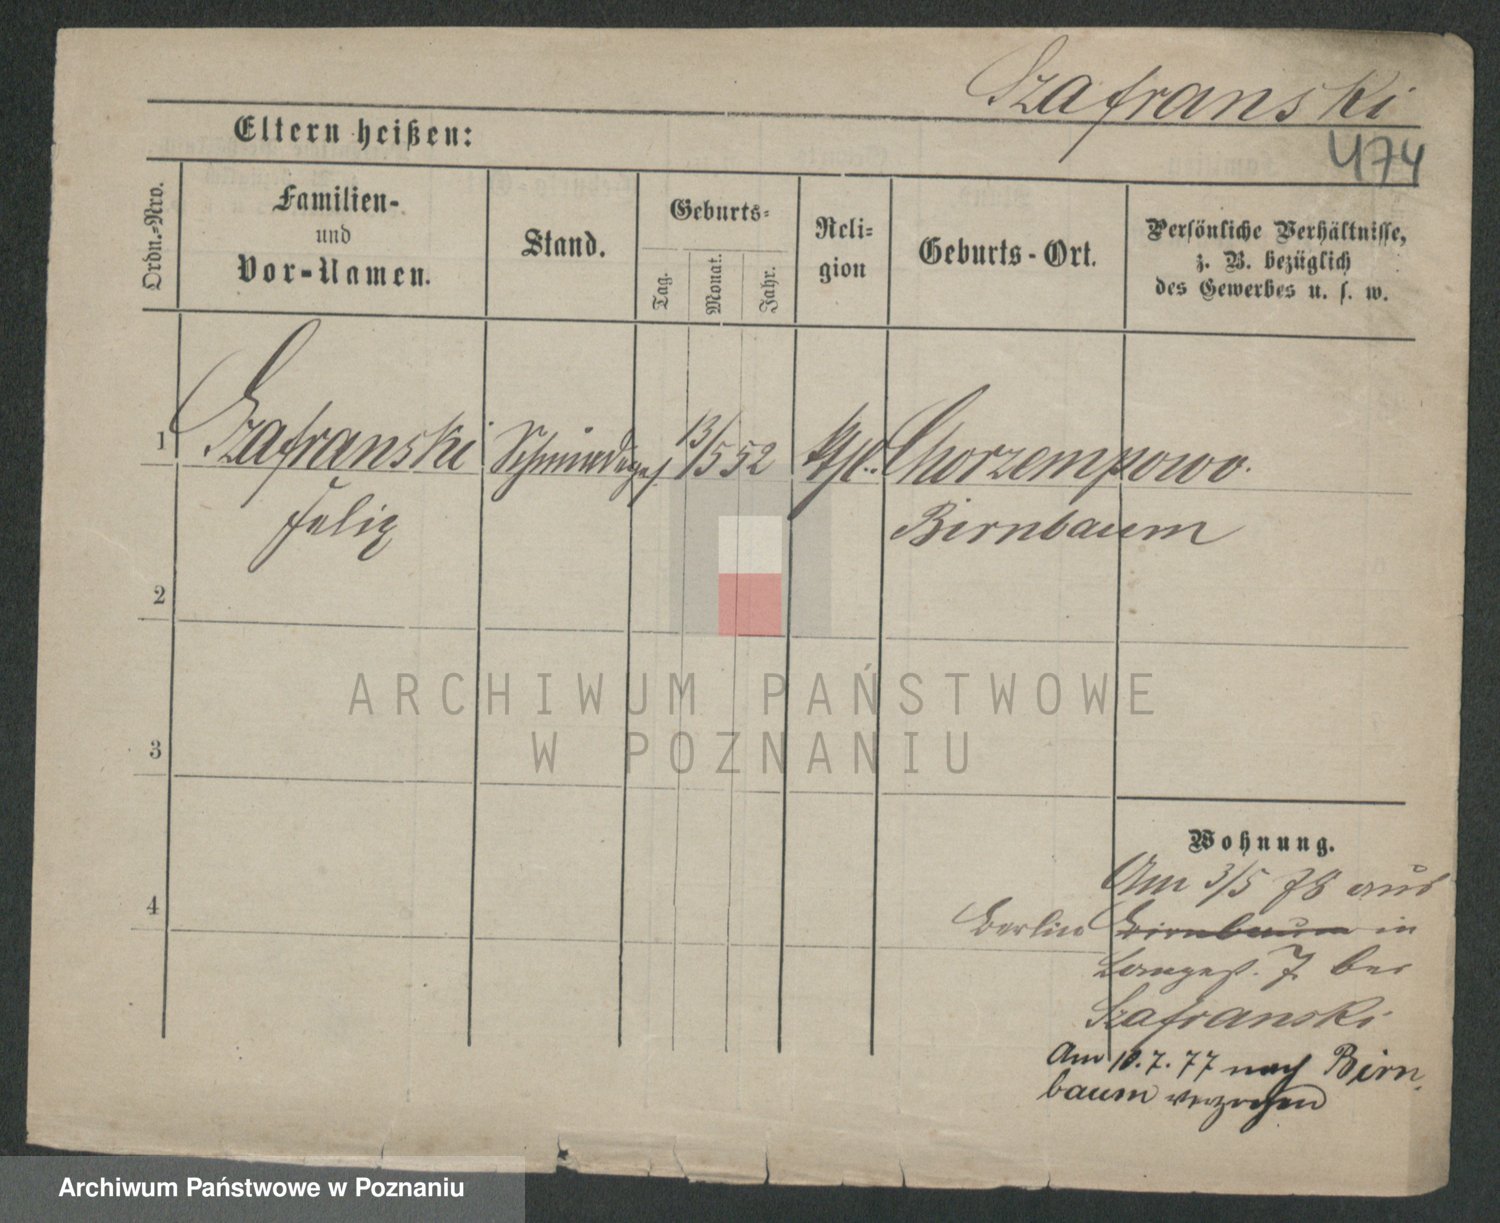 Szafranski
474
Eltern heißen:
Ordn.-Nro.
Familien-
und
Vor-Namen.
Stand.
Geburts-
Tag.
Monat.
Jahr.
Reli-
gion
Geburts-Ort.
Persönliche Verhältnisse,
z. B. bezüglich
des Gewerbes u. s. w.
1 Szafranski 13/5 52 Chorzempowo.
Felix Birnbaum
2
3
4
Wohnung.
Am 3/5 78 aus
Berlin Birnbaum in
Langest. 7. bei
Szafranski
Am 10.7.77 nach Birn
baum verzogen
ARCHIWUM PAŃSTWOWE
W POZNANIU
Archiwum Państwowe w Poznaniu